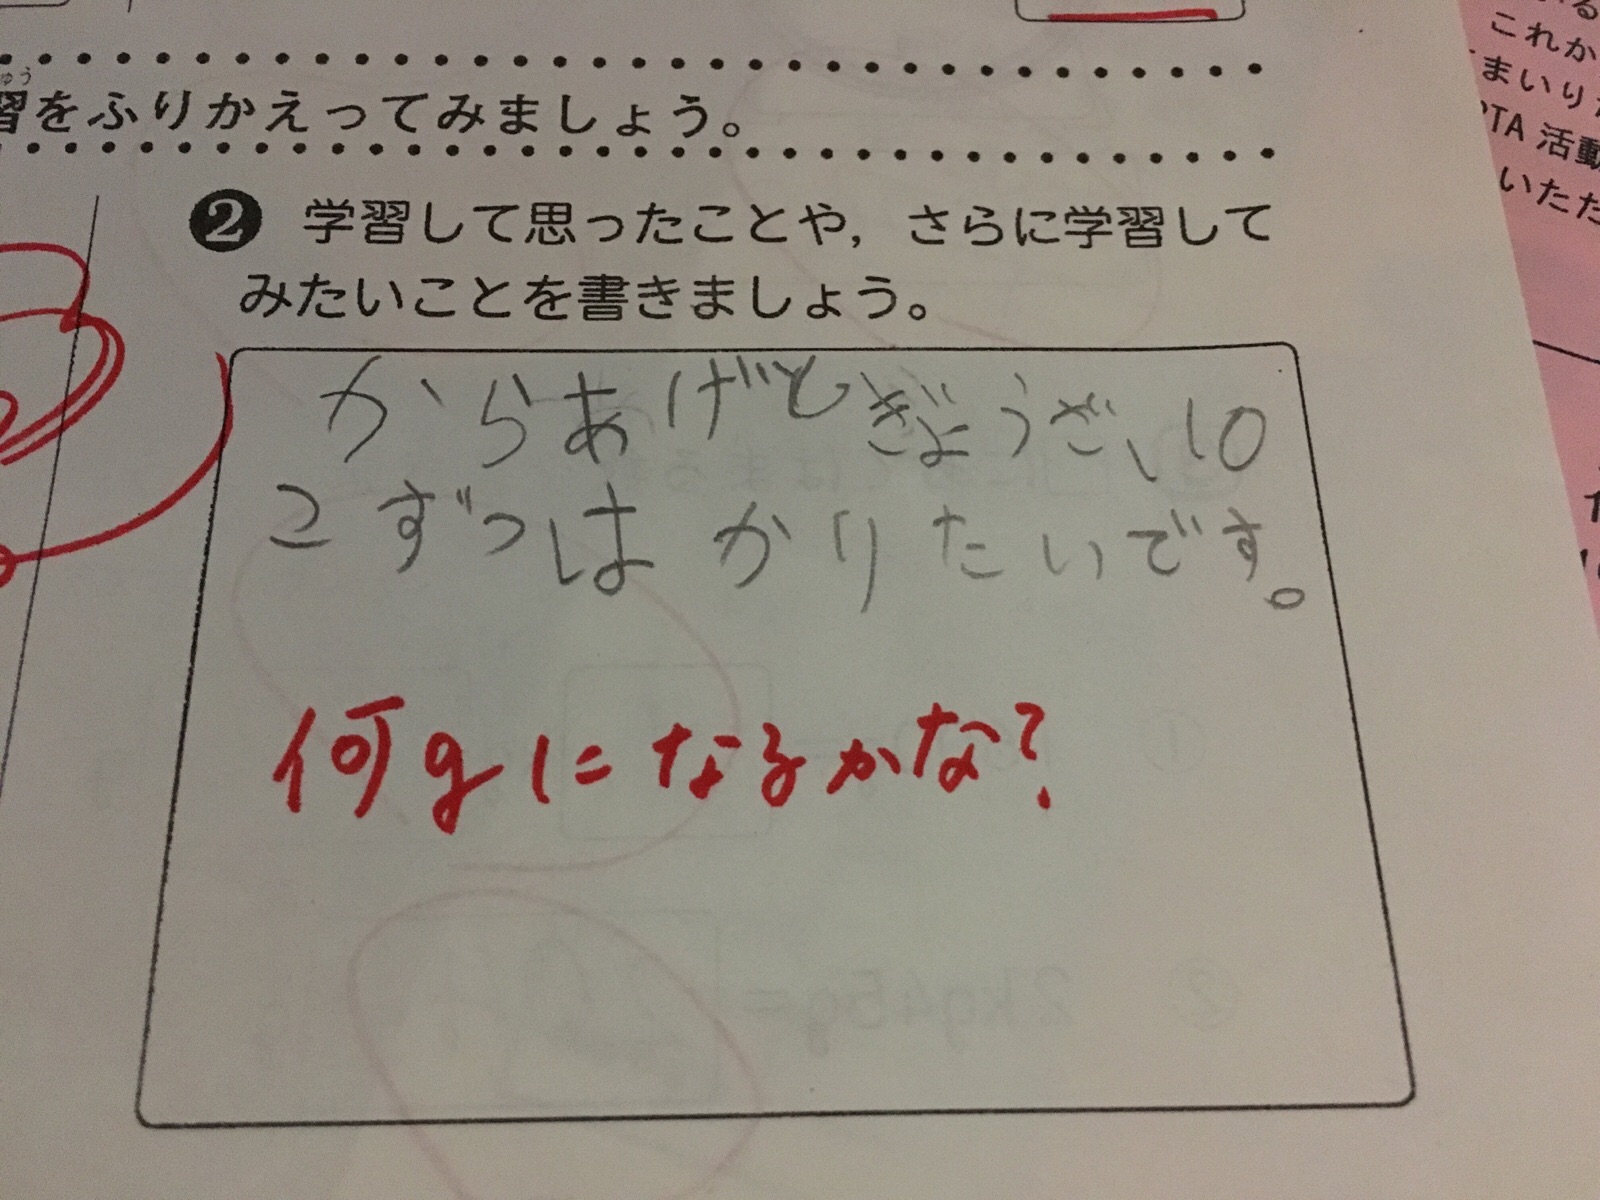 習をふりかえってみましょう。
❷ 学習して思ったことや，さらに学習して
みたいことを書きましょう。
からあげとぎょうざ、10
こずつはかりたいです。
何gになるかな?
これか
まいり
PTA 活動
いただ